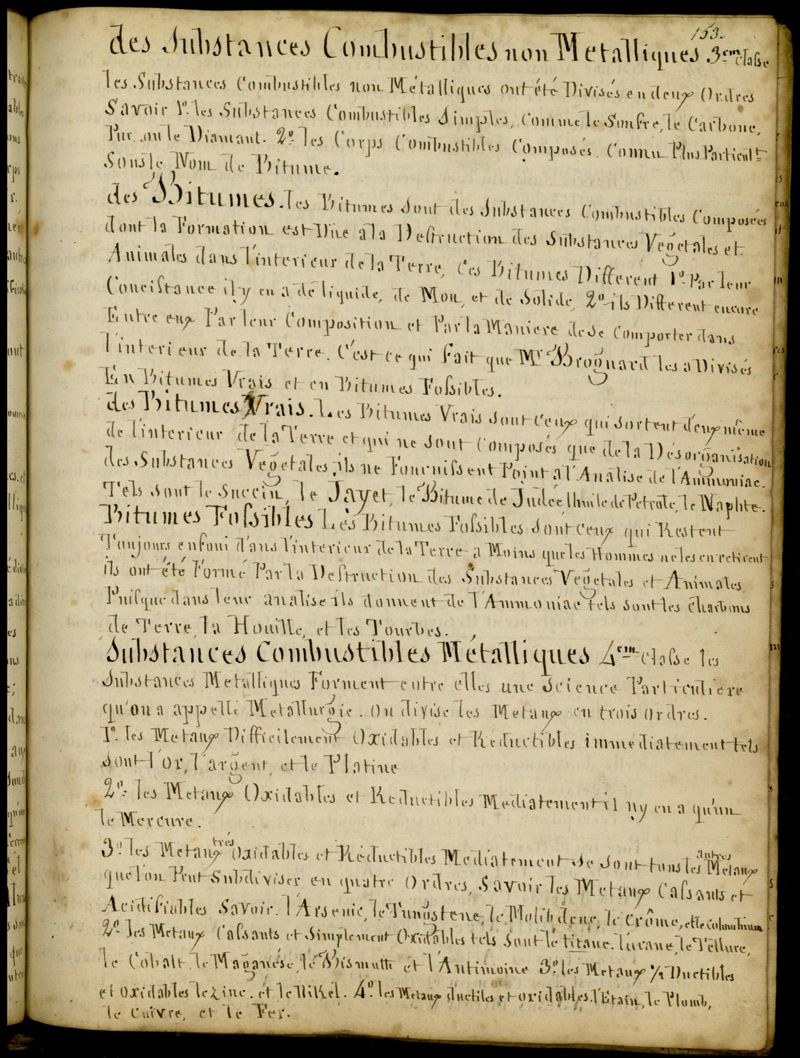 153.
des Substances Combustibles non Metalliques 3em classe
les Substances Combustibles non Métalliques ont été Divisés en deux Ordres
Savoir 1º les Substances Combustibles Simples, comme le Soufre, le Carbone,
Pur ou le Diamant. 2º les Corps Combustibles Composés. Connu Plus Particult
Sous le Nom de Bitume.
des Bitumes. les Bitumes sont des Substances Combustibles Composées
dont la Formation est Due a la Destruction des Substances Vegetales et
Animales dans l'interieur de la Terre, Ces Bitumes Different 1º Par leur
Concistance il y en a de liquide, de Mou, et de Solide, 2º ils Different encore
Entre eux Par leur Composition et Par la Maniere de se Comporter dans
l'interieur de la Terre. C'est ce qui fait que Mr Brognard les a Divisés
En Bitumes Vrais et en Bitumes Fossibles.
des Bitumes Vrais. Les Bitumes Vrais sont ceux qui sortent d'eux même
de l'interieur de la Terre et qui ne sont Composés que de la Désorganisation
des Substances Vegetales, ils ne Fournissent Point a l'Analise de l'Ammoniac.
Tels sont le Succin, le Jayet, le Bitume de Judee l'huile de Petrole, le Naphte.
Bitumes Fossibles Les Bitumes Fossibles Sont Ceux qui Restent
Toujours enfoui dans l'interieur de la Terre a Moins que les Hommes ne les en retirent
ils ont été Formé Par la Destruction des Substances Vegetales et Animales
Puisque dans leur analise ils donnent de l'Ammoniac tels sont les charbons
de Terre, la Houille, et les Tourbes.
Substances Combustibles Métalliques 4em classe les
Substances Metalliques Forment entre elles une Science Particuliere
qu'on a appellé Metallurgie. On divise les Metaux en trois ordres.
1º les Metaux Difficilement Oxidables et Reductibles immediatement tels
sont l'or, l'argent, et le Platine
2º les Metaux Oxidables et Reductibles Mediatement il n'y en a qu'un
le Mercure.
3º les Metaux très Oxidables et Réductibles Mediatement Se sont tous les autres Metaux
que l'on Peut Subdiviser en quatre Ordres, Savoir les Metaux Cassants et
Acidifiables Savoir. l'Arsenic, le Tungstene, le Molibdene, le Crôme, et le columbium
2º les Metaux Cassants et Simplement Oxidables tels sont le titane. l'urane, le Tellure,
le Cobalt, le Maganése, le Bismutte et l'Antimoine 3º les Metaux 1/2 Ductibles
et oxidables le zinc. et le Nikel. 4º les Metaux ductiles et oxidables. l'Etain, le Plomb,
le Cuivre, et le Fer.